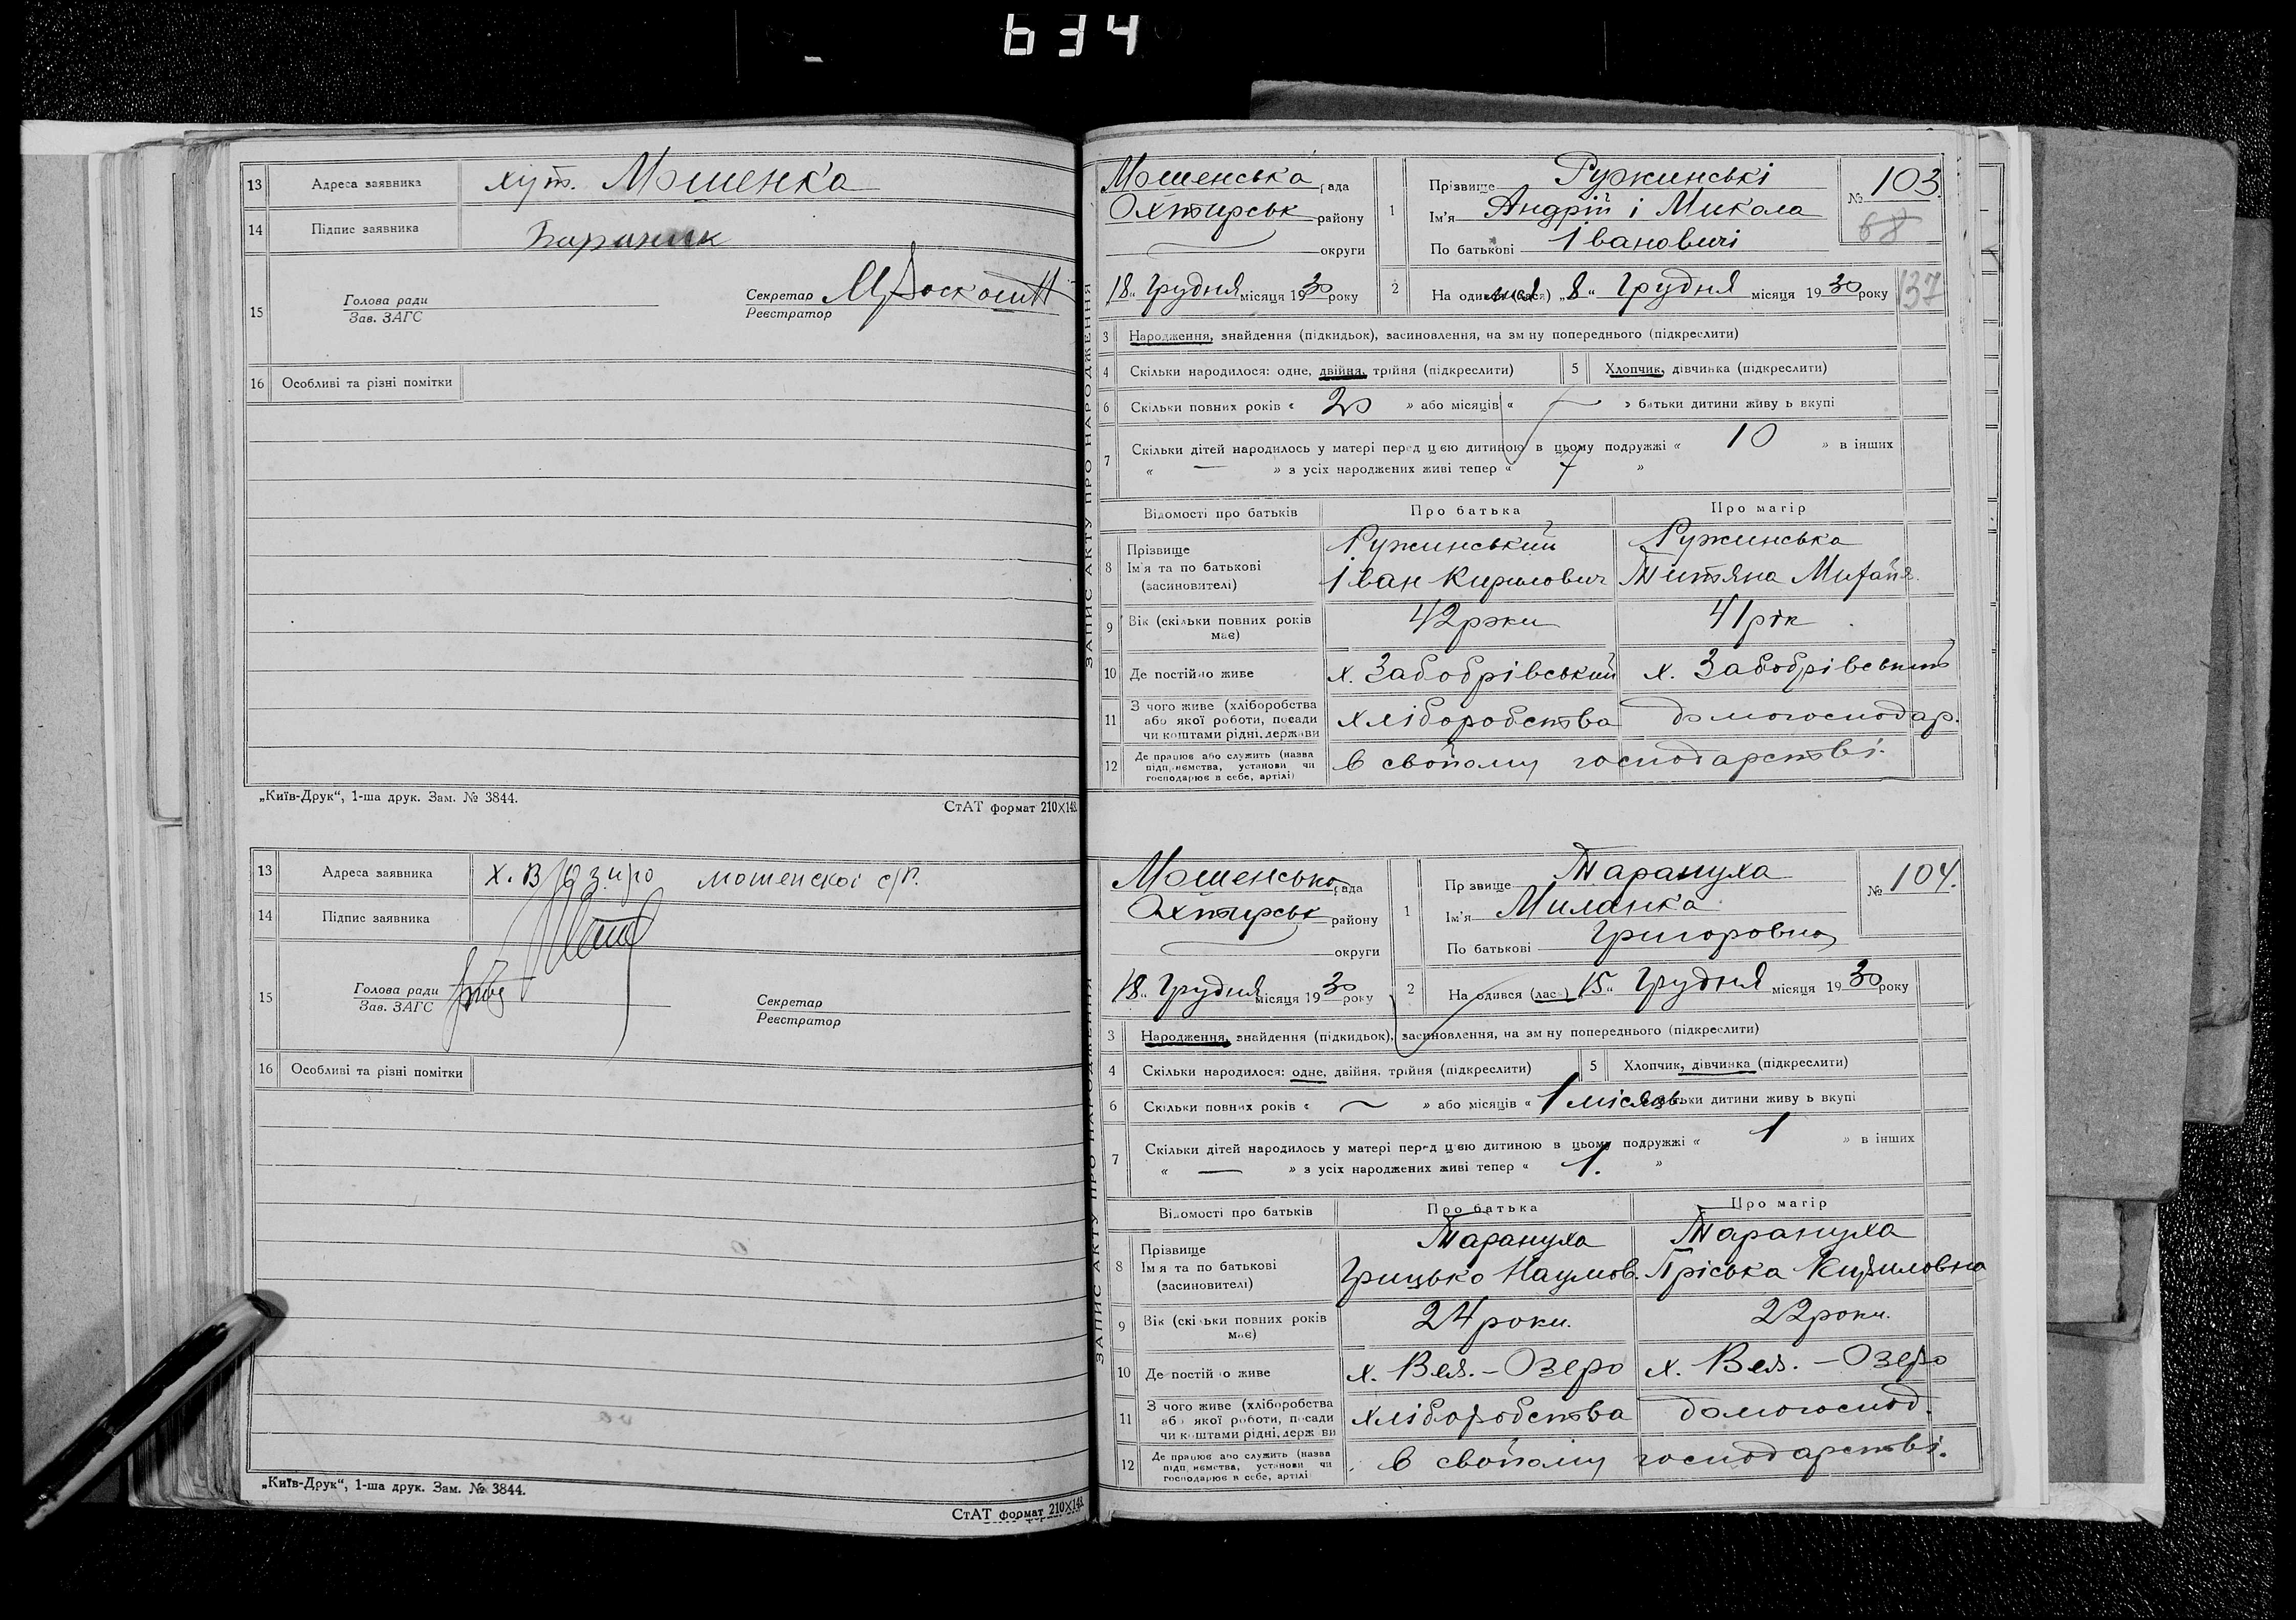 634
13 Адреса заявника хут. Мошенка
14 Підпис заявника
15 Голова ради
Зав. ЗАГС
Секретар
Реєстратор
16 Особливі та різні помітки
„Київ-Друк“, 1-ша друк. Зам. № 3844.
СтАТ формат 210×148
13 Адреса заявника мошенскоі с/р.
14 Підпис заявника
15 Голова ради
Зав. ЗАГС
Секретар
Реєстратор
16 Особливі та різні помітки
„Київ-Друк“, 1-ша друк. Зам. № 3844.
СтАТ формат 210×148
ЗАПИС АКТУ ПРО НАРОДЖЕННЯ
Мошенська рада
Охтирськ району
округи
18 „ Грудня місяця 1930 року
1 Прізвище Ружинські
Ім'я Андрій і Микола
По батькові Івановичі
№ 103.
68
2 „8“ Грудня місяця 1930 року
137
3 Народження, знайдення (підкидьок), засиновлення, на зміну попереднього (підкреслити)
4 Скільки народилося: одне, двійня, трійня (підкреслити)
5 Хлопчик, дівчинка (підкреслити)
6 Скільки повних років « 20 » або місяців « — » батьки дитини живуть вкупі
7 Скільки дітей народилось у матері перед цією дитиною в цьому подружжі « 10 » в інших
« — » з усіх народжених живі тепер « 7 »
Відомості про батьків Про батька Про матір
8 Прізвище
Ім'я та по батькові
(засиновителі)
Ружинський
Іван Кирилович
Ружинська
Титяна Михайл.
9 Вік (скільки повних років має) 42 роки 41 рік
10 Де постійно живе х. Забобрівський х. Забобрівський
11 З чого живе (хліборобства
або якої роботи, посади
чи коштами рідні, держави
хліборобства домогосподар.
12 Де працює або служить (назва
підприємства, установи чи
господарює в себе, артілі)
в своїому господарстві.
ЗАПИС АКТУ ПРО НАРОДЖЕННЯ
Мошенська рада
Охтирськ району
округи
18 „ Грудня місяця 1930 року
1 Прізвище Тарануха
Ім'я Миланка
По батькові Григоровна
№ 104.
2 Народився (лася) „15“ Грудня місяця 1930 року
3 Народження, знайдення (підкидьок), засиновлення, на зміну попереднього (підкреслити)
4 Скільки народилося: одне, двійня, трійня (підкреслити)
5 Хлопчик, дівчинка (підкреслити)
6 Скільки повних років « — » або місяців « 1 місяць батьки дитини живуть вкупі
7 Скільки дітей народилось у матері перед цією дитиною в цьому подружжі « 1 » в інших
« — » з усіх народжених живі тепер « 1. »
Відомості про батьків Про батька Про матір
8 Прізвище
Ім'я та по батькові
(засиновителі)
Тарануха
Грицько Наумов.
Тарануха
Пріська Кириловна
9 Вік (скільки повних років має) 24 роки. 22 роки.
10 Де постійно живе х. Вел.-Озеро х. Вел.-Озеро
11 З чого живе (хліборобства
або якої роботи, посади
чи коштами рідні, держави
хліборобства домогоспод.
12 Де працює або служить (назва
підприємства, установи чи
господарює в себе, артілі
в своїому господарстві.